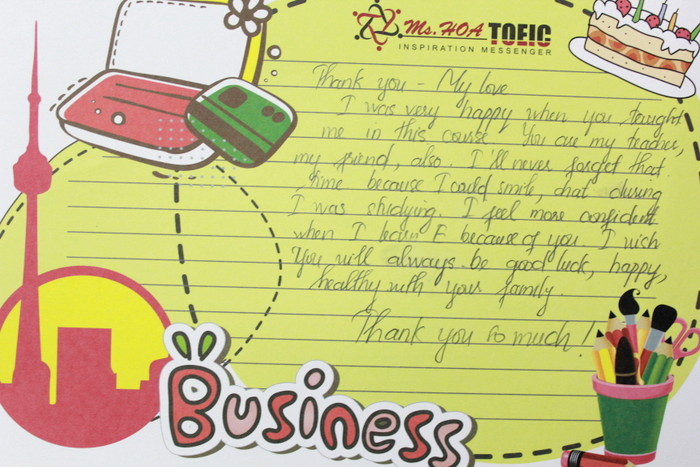 Ms. HOA TOEIC
INSPIRATION MESSENGER
Thank you - My love
I was very happy when you tought
me in this course. You are my teacher,
my friend, also. I'll never forget that
time because I could smile, chat during
I was studying. I feel more confident
when I learn E because of you. I wish
You will always be good luck, happy,
healthy with your family.
Thank you so much!
Business